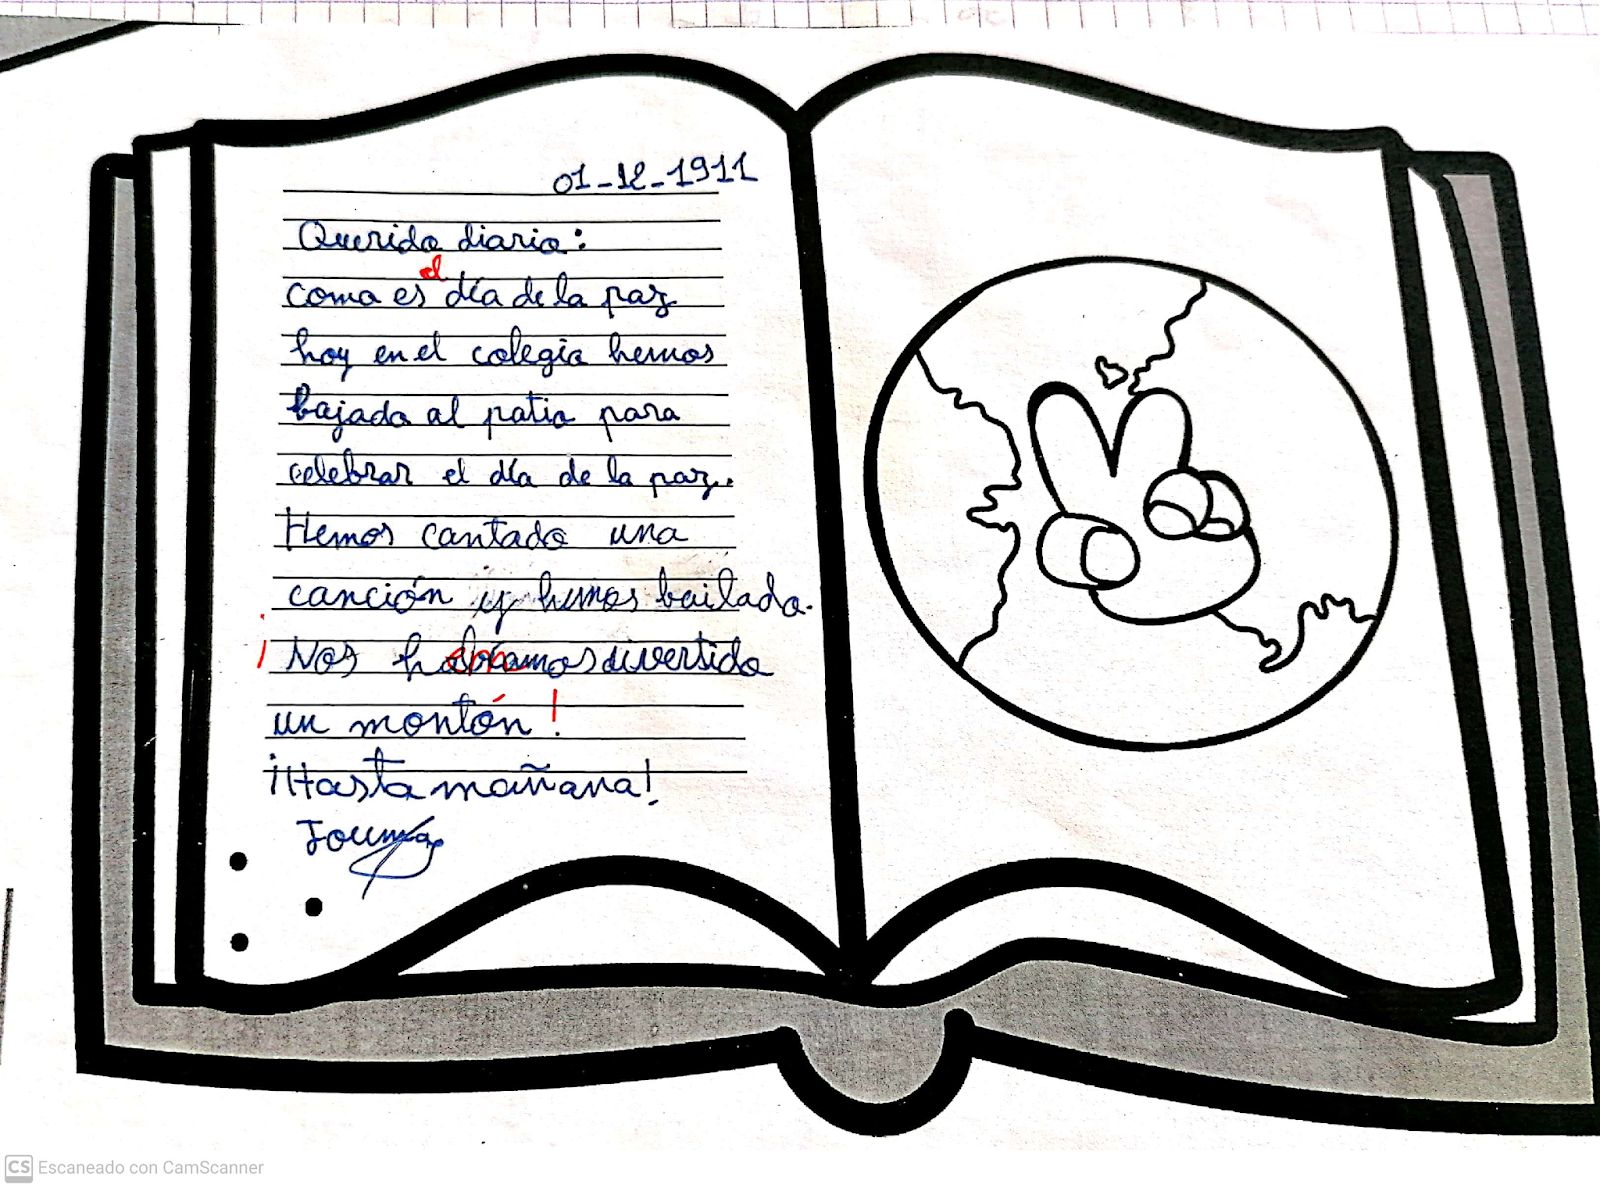 01-12-1911
Querido diario:
el
como es día de la paz
hoy en el colegio hemos
bajado al patio para
celebrar el día de la paz.
Hemos cantado una
canción y hemos bailado.
¡Nos habíamos divertido
un montón!
¡Hasta mañana!
CS Escaneado con CamScanner